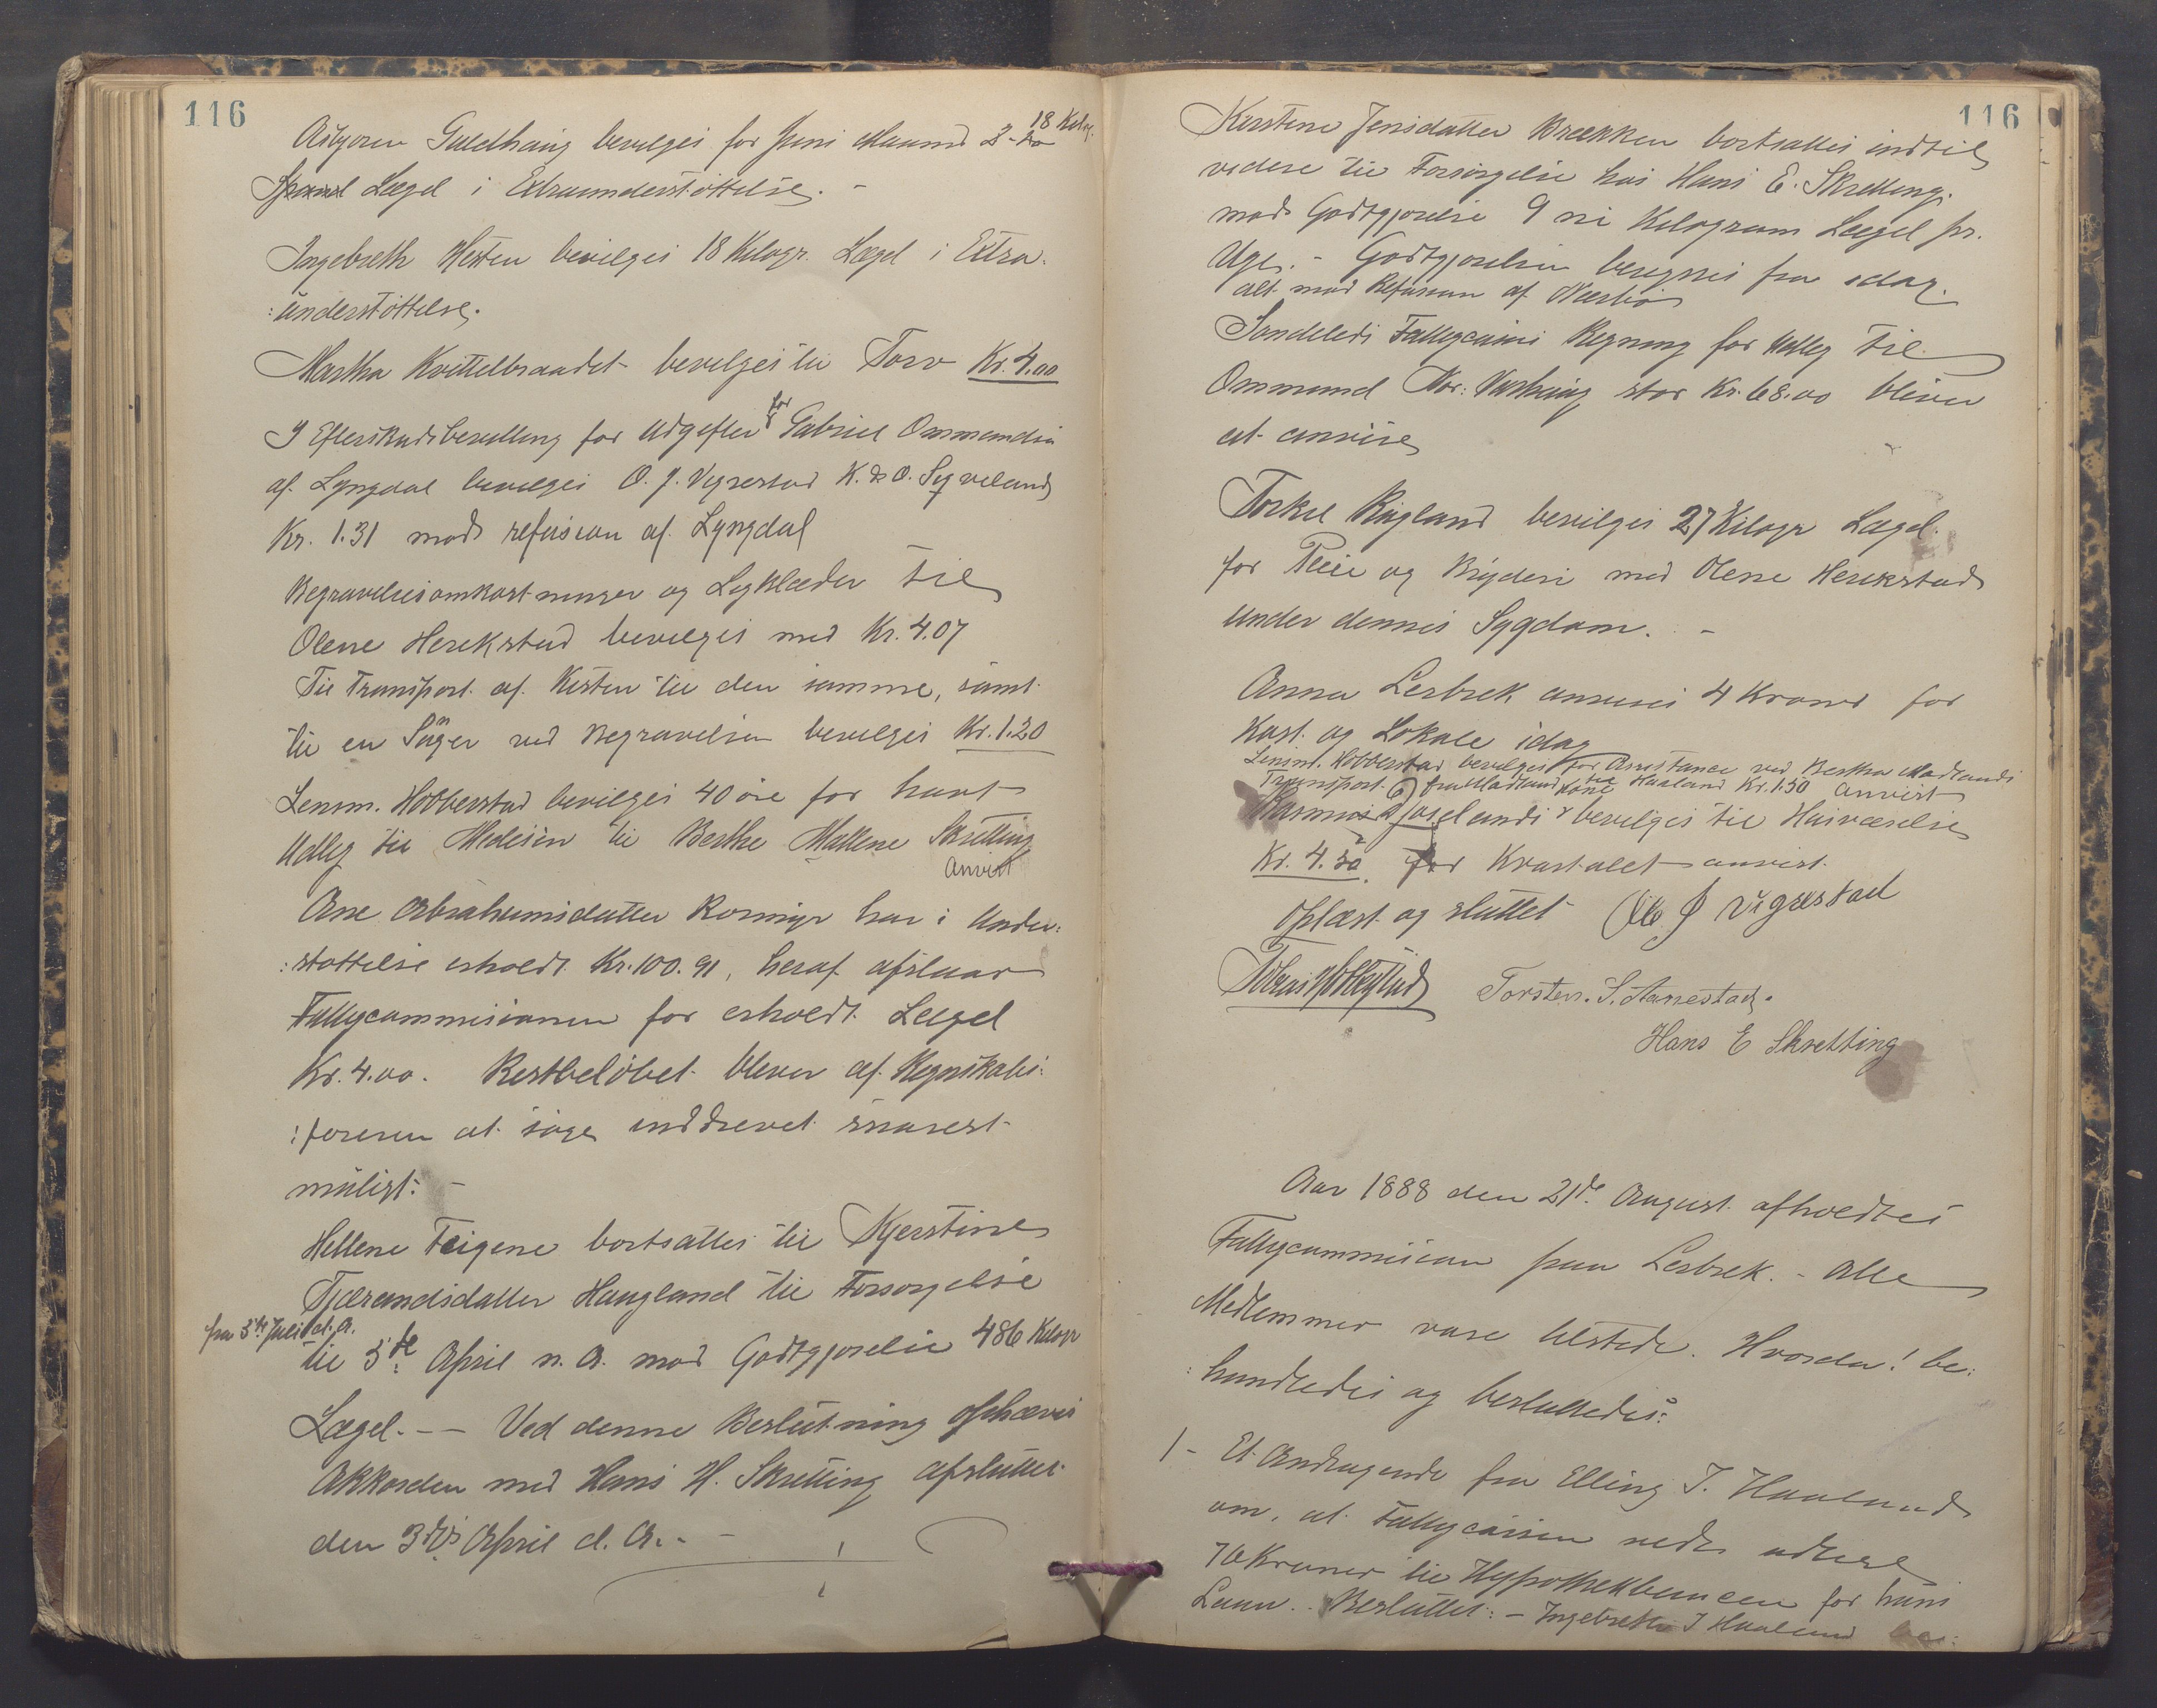 116
Asbjoren Guldhaug bevilges for Juni Maaned 18 Kilogr.
Lægd i Extraunderstöttelse. -
Ingebreth Westen bevilges 18 Kilogr. Lægd i Extra:
:understöttelse.
Martha Kvittelbraadet bevilges til Torv Kr. 4.00
I Efterskudsbevilling for Udgifter for Gabriel Ommundsen
af Lyngdal bevilges O. J. Vigrestad K. & O. Sigveland
Kr. 1.31 mod refusion af Lyngdal
Begravelsesomkostninger og Ligklæder til
Olene Herikstad bevilges med Kr. 4.07
Til Transport af Kisten til den samme, samt
til en Sanger ved Begravelsen bevilges Kr. 1.20
Lensm. Hobberstad bevilges 40 öre for havt
Udleg til Medesin til Berthe Mallene Skretting
Anvist
Ane Abrahamsdatter Rosmyr har i Under:
:stottelse erholdt Kr. 100.91, heraf afslaar
Fattigcommisionen for erholdt Lægd
Kr. 4.00. Restbelöbet bliver af Regnskabs:
:föreren at söge inddrevet snarest
muligt: -
Hellene Teigene bortsattes til Kjerstine
Tjærandsdatter Haugland til Forsorgelse
fra 3de Juli d. A.
til 3de April n. A. mod Godtgjorelse 486 Kilogr
Lægd. -- Ved denne Beslutning ophæves
Akkorden med Hans H. Skretting afsluttet
den 3die April d. A. -
116
Kirstene Jensdatter Brækken bortsattes indtil
videre til Forsörgelse hos Hans E. Skretting.
mod Godtgjorelse 9 ni Kilogram Lægd pr.
Uge. - Godtgjorelsen beregnes fra idag.
alt mod Refusion af Nærbö
Söndeleds Fattigcasses Regning for Udleg til
Ommund Nor: Varhaug stor Kr. 68.00 bliver
at anvise
Torkel Rugland bevilges 27 Kilogr Lægd
for Pleie og Bryderi med Olene Herikstad
under dennes Sygdom. -
Anna Lerbrek anvises 4 Kroner for
Kost og Lokale idag
Lensm. Hobberstad bevilges for Assistance ved Bertha Madlands
Transport fra Madland til Haaland Kr. 1.50 Anvist
Rasmus Joselands Kone bevilges til Husværelse
Kr. 4.50 for Kvartalet anvist.
Oplæst og sluttet Ole J Vigrestad
Torsten. S. Aarrestad.
Hans E Skretting
Aar 1888 den 21de August afholdtes
Fattigcommision paa Lerbrek. - Alle
Medlemmer vare tilstede. Hvorda! be:
:handledes og besluttedes:
1- Et Andragende fra Elling T. Haaland
om, at Fattigcassen vilde udlegge
70 Kroner til Hypothekbancen for hans
Laan. Besluttet: - Ingebreth J Haaland